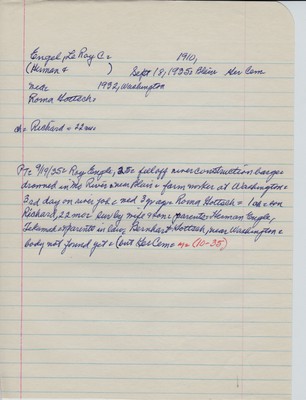 Engel, Le Roy C = 1910,
(Herman & ) Sept. 18, 1935 = Blair Her Cem
near 1932, Washington
Roma Hottsch =
ch = Richard = 22 mos
PT = 9/19/35 = Roy Engle, 25 = fell off river construction barge =
drowned in Mo River = near Blair = farm worker at Washington =
3rd day on river job = wed 3 yr ago Roma Hottsch = 1 ch = son
Richard, 22 mos = Sur by wife & son = parents = Herman Engle,
Tekamah = parents in law, Bernhart Hottsch, near Washington =
body not found yet = (but Her Cem = (10-35)